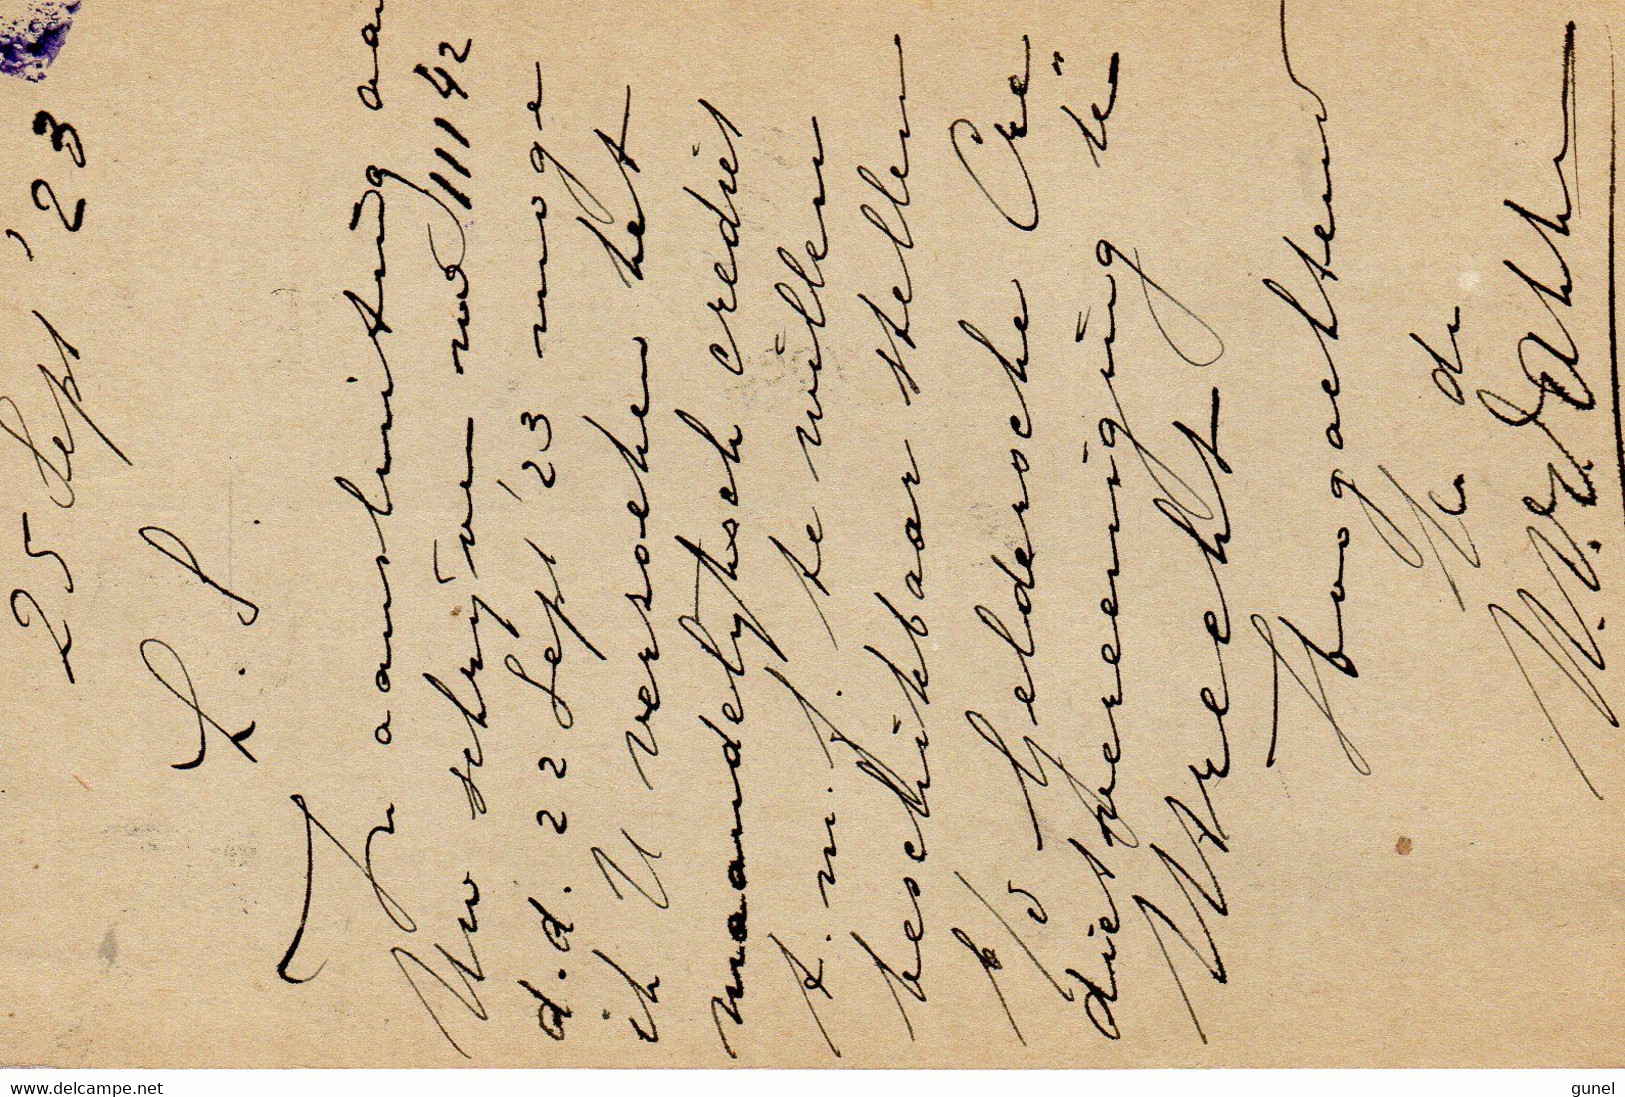 25 Sept '23
L. S.
In aansluiting aa
Uw schrijven no 11142
d.d. 22 Sept '23 moge
ik U verzoeken het
maandelijksch crediet
t. n. J. te willen
beschikbaar stellen
b/d Geldersche Cre
dietvereeniging te
Utrecht
Hoogachtend
Uw dr
www.delcampe.net
gunel